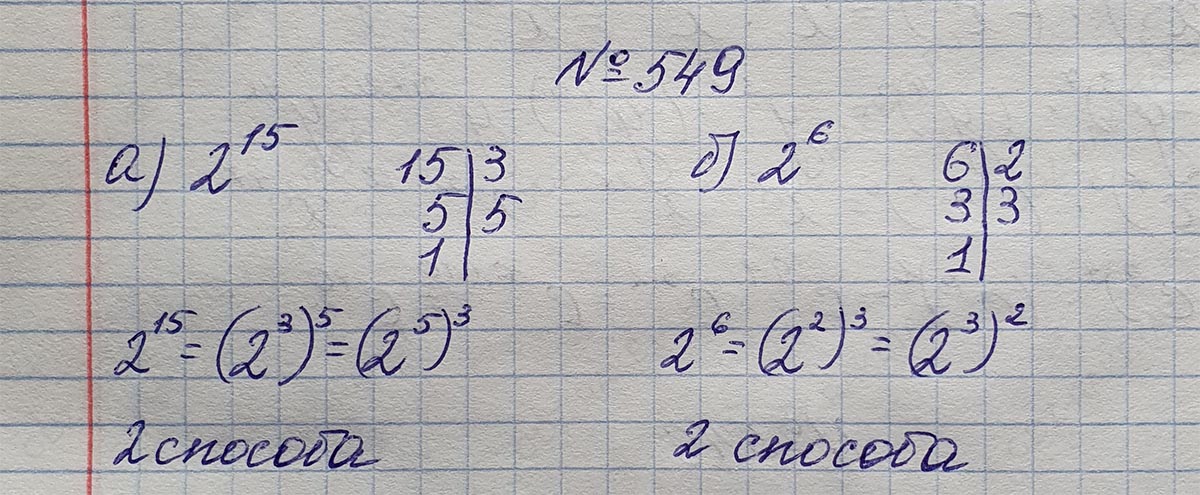 № 549
а) 2^15 15 | 3 б) 2^6 6 | 2
5 | 5 3 | 3
1 | 1 |
2^15 = (2^3)^5 = (2^5)^3 2^6 = (2^2)^3 = (2^3)^2
2 способа 2 способа